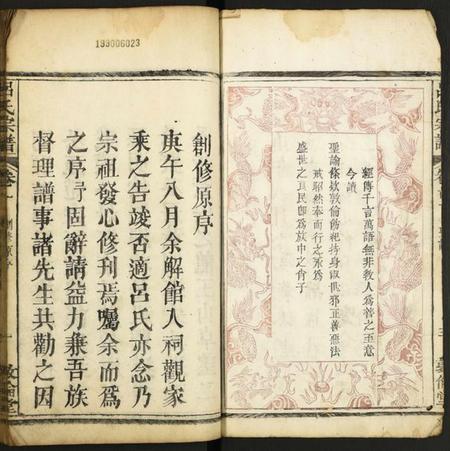 199006023
經傳千言萬語無非教人為善之至意
今讀
聖諭條欵敦倫飭紀持身淑世邪正善惡法
戒昭然奉而行之永為
盛世之良民即為族中之肖子
呂氏宗譜
創修原序
庚午八月余解館入祠觀家
乘之告竣否適呂氏亦念乃
宗祖發心修刊焉囑余而為
之序予固辭請益力兼吾族
督理譜事諸先生共勸之因
呂氏宗譜
卷一
創修原序
一
敦倫堂